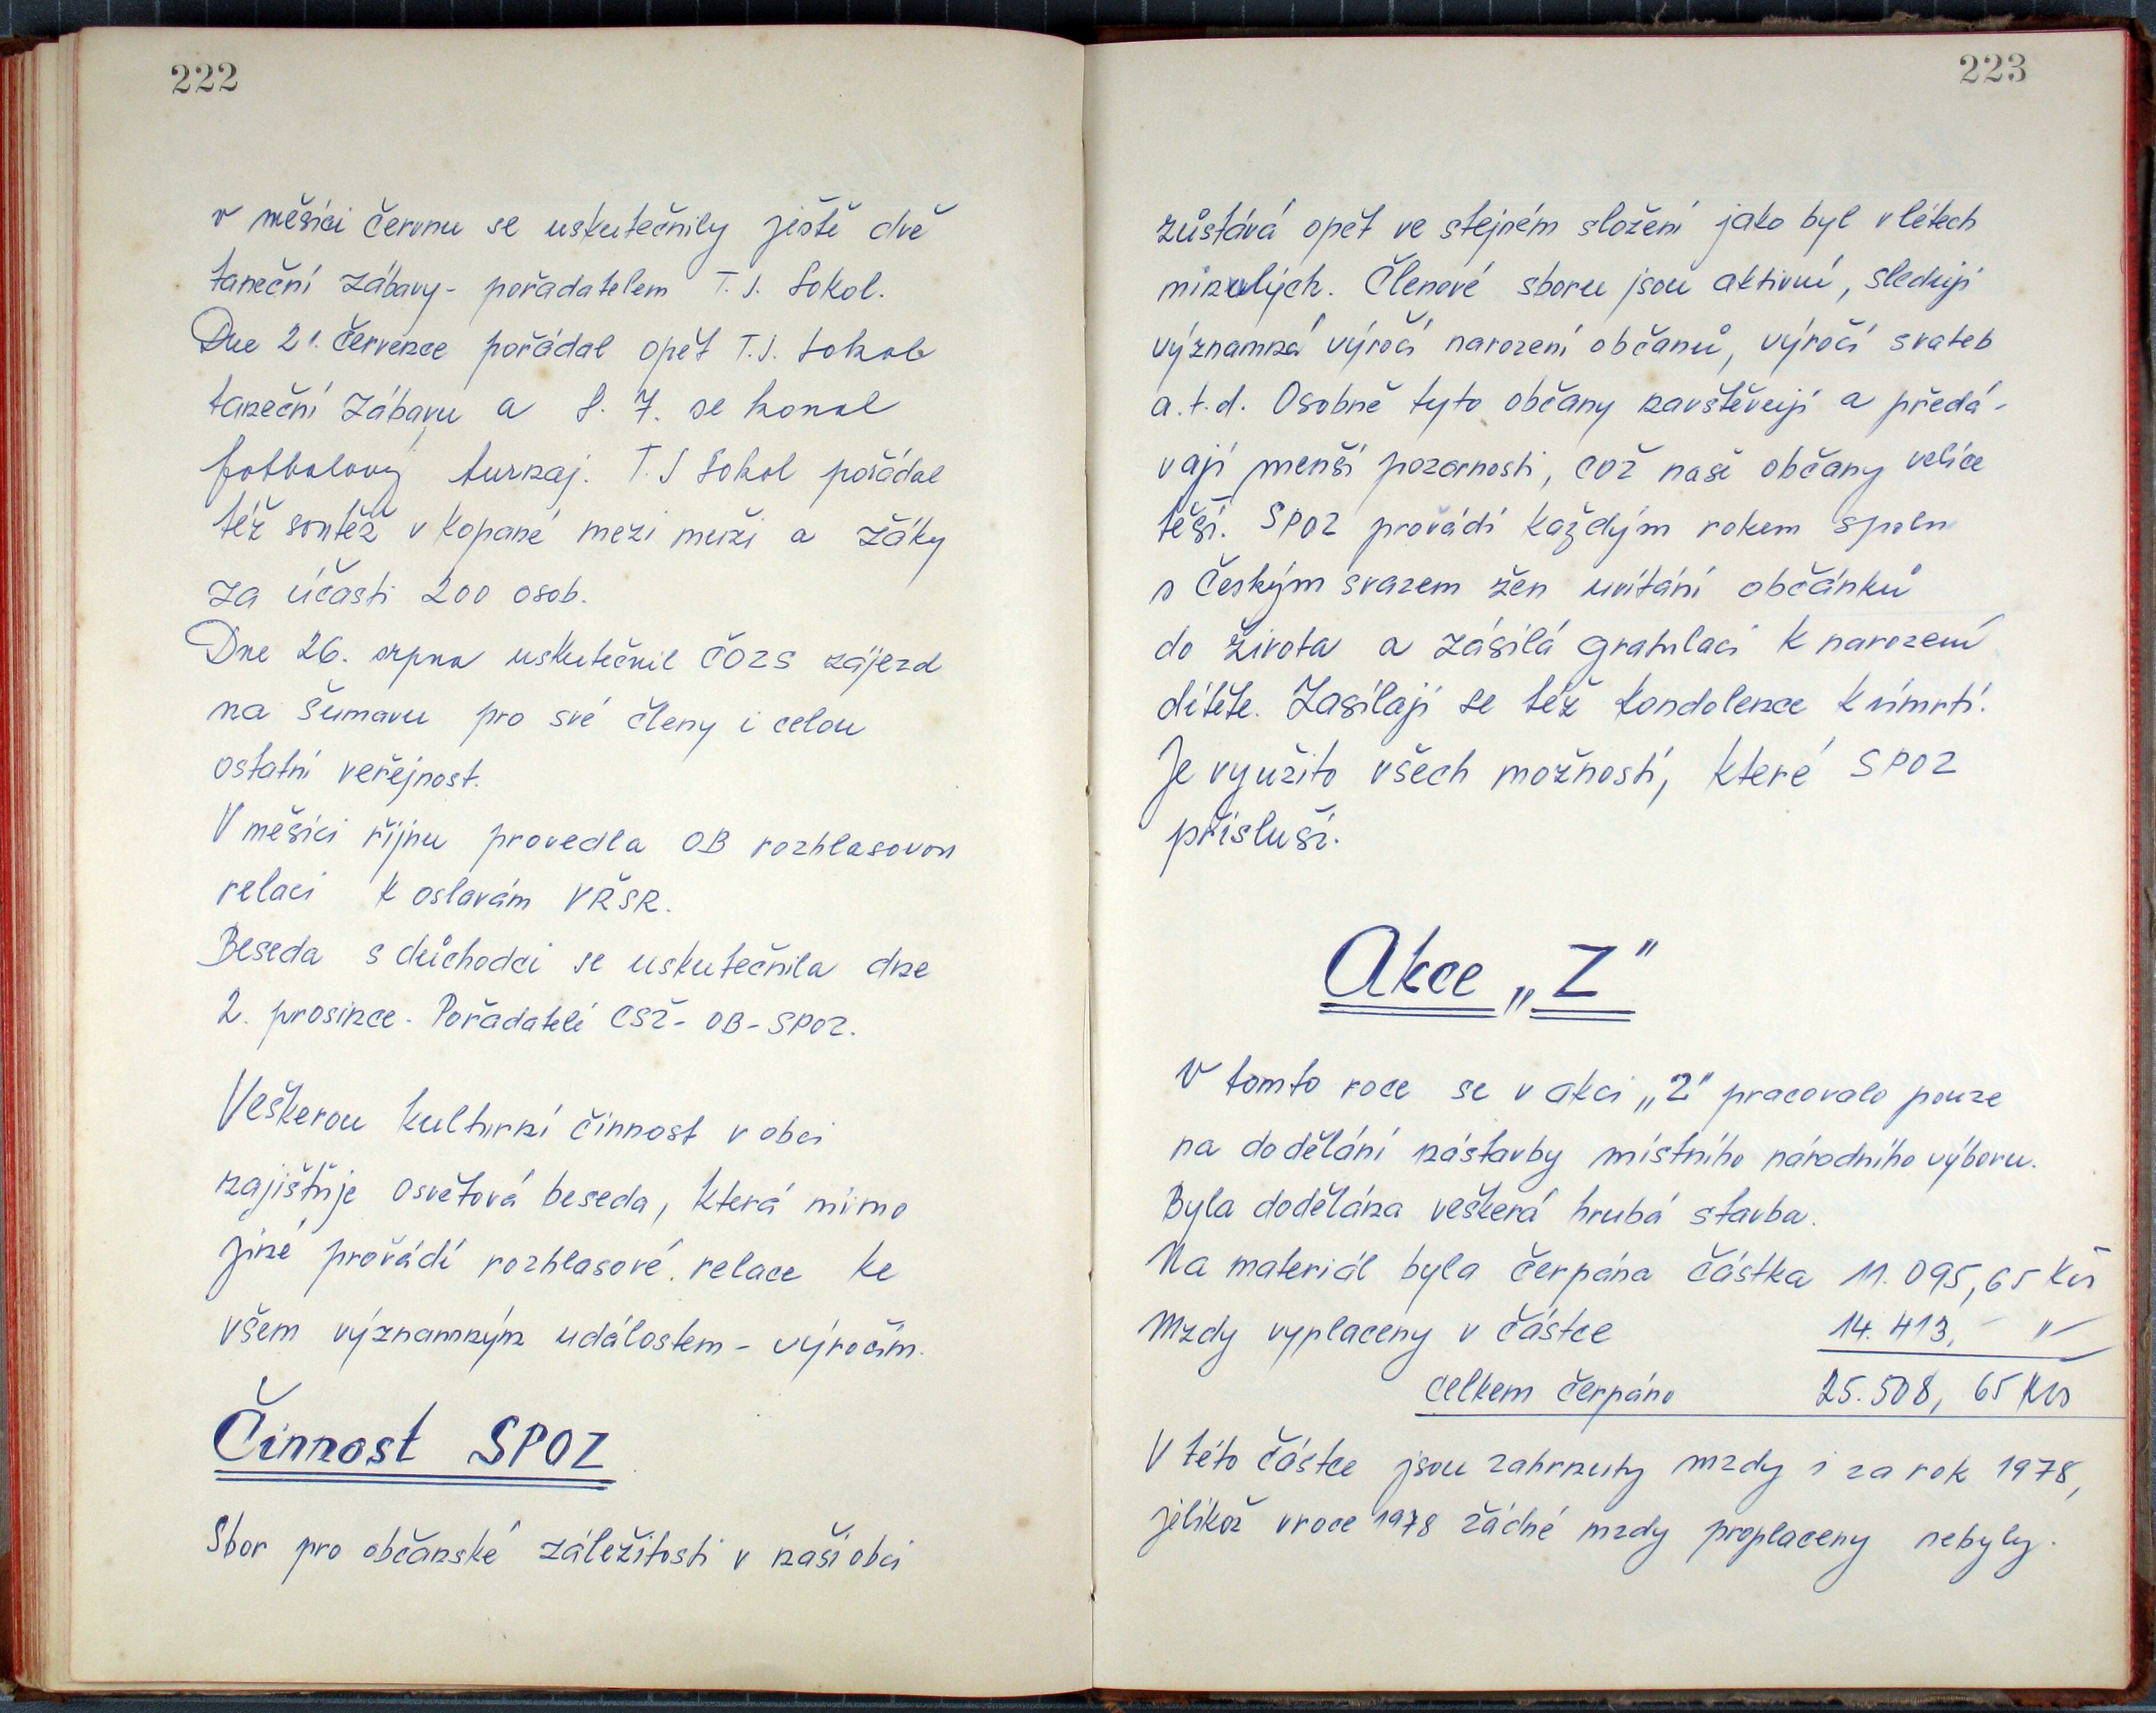 222
v měsíci červnu se uskutečnily ještě dvě
taneční zábavy - pořadatelem T.J. Sokol.
Dne 21. července pořádal opět T.J. Sokol
taneční zábavu a 8. 7. se konal
fotbalový turnaj. T.J Sokol pořádal
též soutěž v kopané mezi muži a žáky
za účasti 200 osob.
Dne 26. srpna uskutečnil ČOZS zájezd
na Šumavu pro své členy i celou
ostatní veřejnost.
V měsíci říjnu provedla OB rozhlasovou
relaci k oslavám VŘSR.
Beseda s důchodci se uskutečnila dne
2. prosince. Pořadatelé CSŽ - OB - SPOZ.
Veškerou kulturní činnost v obci
zajišťuje Osvětová beseda, která mimo
jiné provádí rozhlasové relace ke
všem významným událostem - výročím.
Činnost SPOZ
Sbor pro občanské záležitosti v naší obci
223
zůstává opět ve stejném složení jako byl v létech
minulých. Členové sboru jsou aktivní, sledují
významná výročí narození občanů, výročí svateb
a.t.d. Osobně tyto občany navštěvují a předá-
vají menší pozornosti, což naše občany velice
těší. SPOZ provádí každým rokem spolu
s Českým svazem žen uvítání občánků
do života a zásílá gratulaci k narození
dítěte. Zasílají se též kondolence k úmrtí.
Je využito všech možností, které SPOZ
přísluší.
Akce „Z"
V tomto roce se v akci „Z" pracovalo pouze
na dodělání nástavby místního národního výboru.
Byla dodělána veškerá hrubá stavba.
Na materiál byla čerpána částka 11.095,65 Kčs
Mzdy vyplaceny v částce 14.413,- "
celkem čerpáno 25.508,65 Kčs
V této částce jsou zahrnuty mzdy i za rok 1978,
jelikož v roce 1978 žádné mzdy proplaceny nebyly.